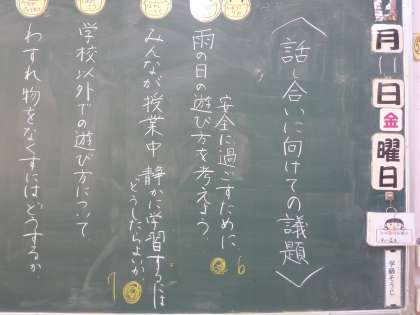 〈話し合いに向けての議題〉
安全に過ごすために、
雨の日の遊び方を考えよう
6
みんなが授業中 静かに学習するには
どうしたらよいか
7
学校以外での遊び方について
わすれ物をなくすにはどうするか
月
日
金
曜日